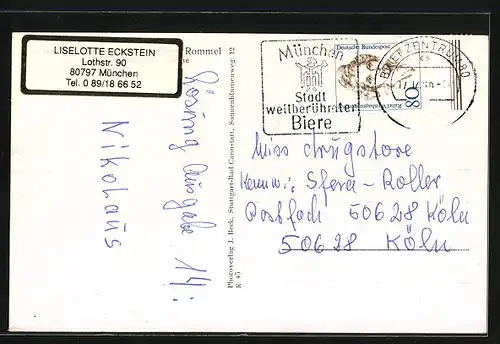 LISELOTTE ECKSTEIN
Lothstr. 90
80797 München
Tel. 0 89/18 66 52
Rommel
Lösung Ausgabe 14:
Nikolaus
Photoverlag J. Beck, Stuttgart-Bad Cannstatt, Sonnenblumenweg 12
K 45
München
Stadt
weltberühmter
Biere
Deutsche Bundespost
BRIEFZENTRUM 80
80
Miss Drugstore
Kennw.: Sfera-Roller
Postfach 50628 Köln
50628 Köln